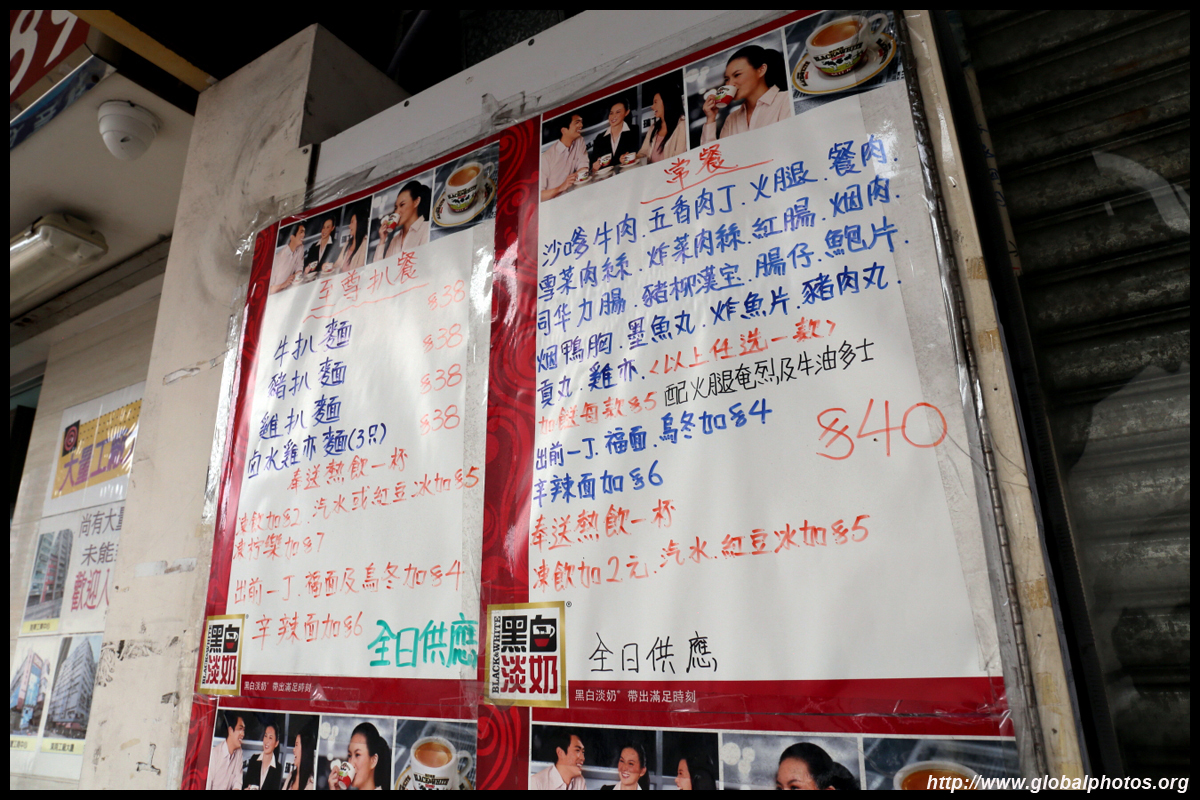 89
大量工
尚有大量
未能
歡迎人
至尊扒餐
$38
牛扒麵 $38
豬扒麵 $38
雞扒麵 $38
卤水雞亦麵(3只)
奉送熱飲一杯
凍飲加$2.汽水或紅豆冰加$5
凍柠樂加$7
出前一丁.福面及烏冬加$4
辛辣面加$6
全日供應
BLACK&WHITE
黑白
淡奶
黑白淡奶® 帶出滿足時刻
常餐
沙嗲牛肉.五香肉丁.火腿.餐肉.
雪菜肉絲.炸菜肉絲.紅腸.烟肉.
同华力腸.豬柳漢宝.腸仔.鮑片.
烟鴨胸.墨魚丸.炸魚片.豬肉丸.
貢丸.雞亦.<以上任选一款>
加餸每款$5 配火腿奄烈,及牛油多士
出前一丁.福面.烏冬加$4
$40
辛辣面加$6
奉送熱飲一杯
凍飲加2元.汽水.紅豆冰加$5
全日供應
BLACK&WHITE
黑白
淡奶
黑白淡奶® 帶出滿足時刻
http://www.globalphotos.org